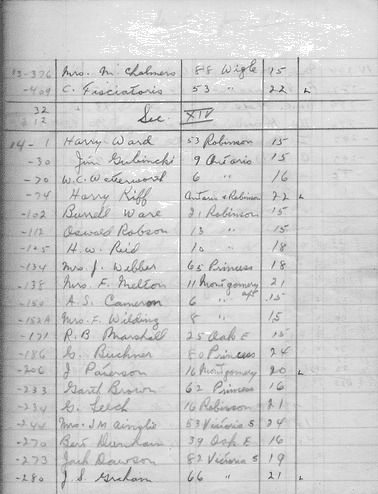 13-376 Mrs. M. Chalmers 88 Wigle 15
-409 C. Fisciatoris 53 " 22 L
32
12 Sec. XIV
14-1 Harry Ward 53 Robinson 15
-30 Jim 9 Ontario 15
-70 W.C. Watterworth 6 " 16
-74 Harry Kiff Ontario & Robinson 22 L
-102 Burrell Ware 21 Robinson 15
-112 Oswald Robson 13 " 15
-125 H.W. Reid 10 " 18
-134 Mrs. J. Webber 65 Princess 18
-138 Mrs. F. Melton 11 Montgomery 21
-150 A.S. Cameron 6 " apt 15
-152A Mrs. F. Wilding 8 " 15
-171 R.B. Marshall 25 Oak E 15
-186 G. Buchner 80 Princess 24
-206 J. Paterson 16 Montgomery 20 L
-233 Garth Brown 62 Princess 16
-234 G. Leech 16 Robinson 21
-244 Mrs. J M 53 Victoria S 24
-270 Bert Durnham 39 Oak E 16
-273 Jack Dawson 82 Victoria S 19
-280 J.S. Graham 66 " 21 L